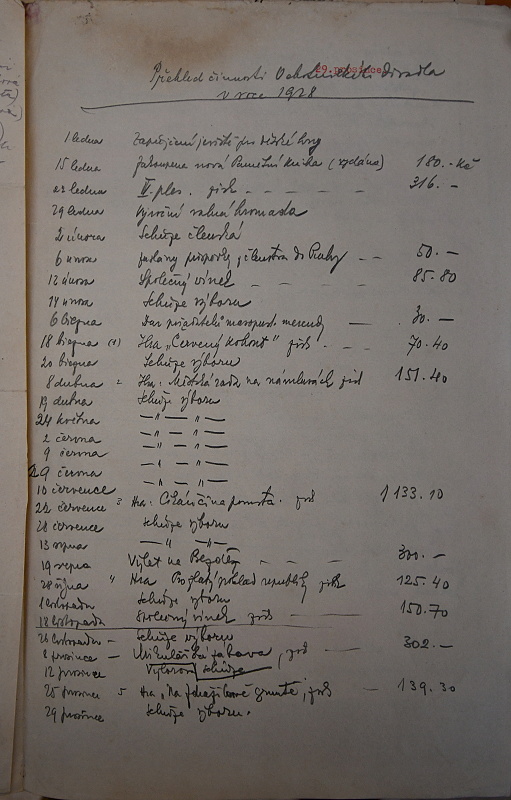 Přehled činnosti Ochotnického divadla
v roce 1928
1 ledna Zapůjčení jeviště pro dětské hry
15 ledna Zakoupena nová Pamětní kniha (vydáno) 180.- Kč
22 ledna IV. ples. zisk - - - - 316.-
29 ledna Výroční valná hromada
2 února Schůze členská
6 února příspěvky do Prahy - - 50.-
12 února Společný vínek - - - - 85.80
14 února Schůze výboru
6 března Dar 30.-
18 března (1) Hra "Červený kohout" zisk - - 70.40
20 března Schůze výboru
8 dubna 2 Hra: Městská rada na námluvách zisk 151.40
dubna Schůze výboru
24 května — " — " —
2 června — " — " —
9 června — " — " —
29 června — " — " —
10 července — " — " —
22 července 3 Hra: pomsta. zisk 1133.10
28 července Schůze výboru
13 srpna — " — " —
19 srpna Výlet na Bezděz - - - 300.-
28 října " Hra poklad republiky zisk 125.40
1 listopadu Schůze výboru
18 listopadu Společný vínek zisk - - 150.70
26 listopadu - Schůze výboru
2 prosince - Mikulášská zábava, zisk - - 302.-
12 prosince Výborová schůze
25 prosince 5 Hra "Na zisk - 139.30
29 prosince Schůze výboru.